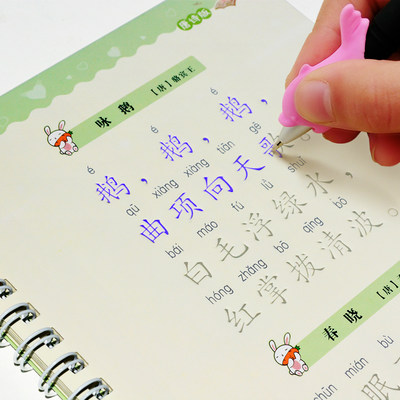 咏鹅 【唐】骆宾王
é é é
鹅，鹅，鹅，
qū xiàng xiàng tiān gē
曲项向天歌
bái máo fú lǜ shuǐ
白毛浮绿水，
hóng zhǎng bō qīng bō
红掌拨清波。
春晓 【唐】
chūn mián bù
眠